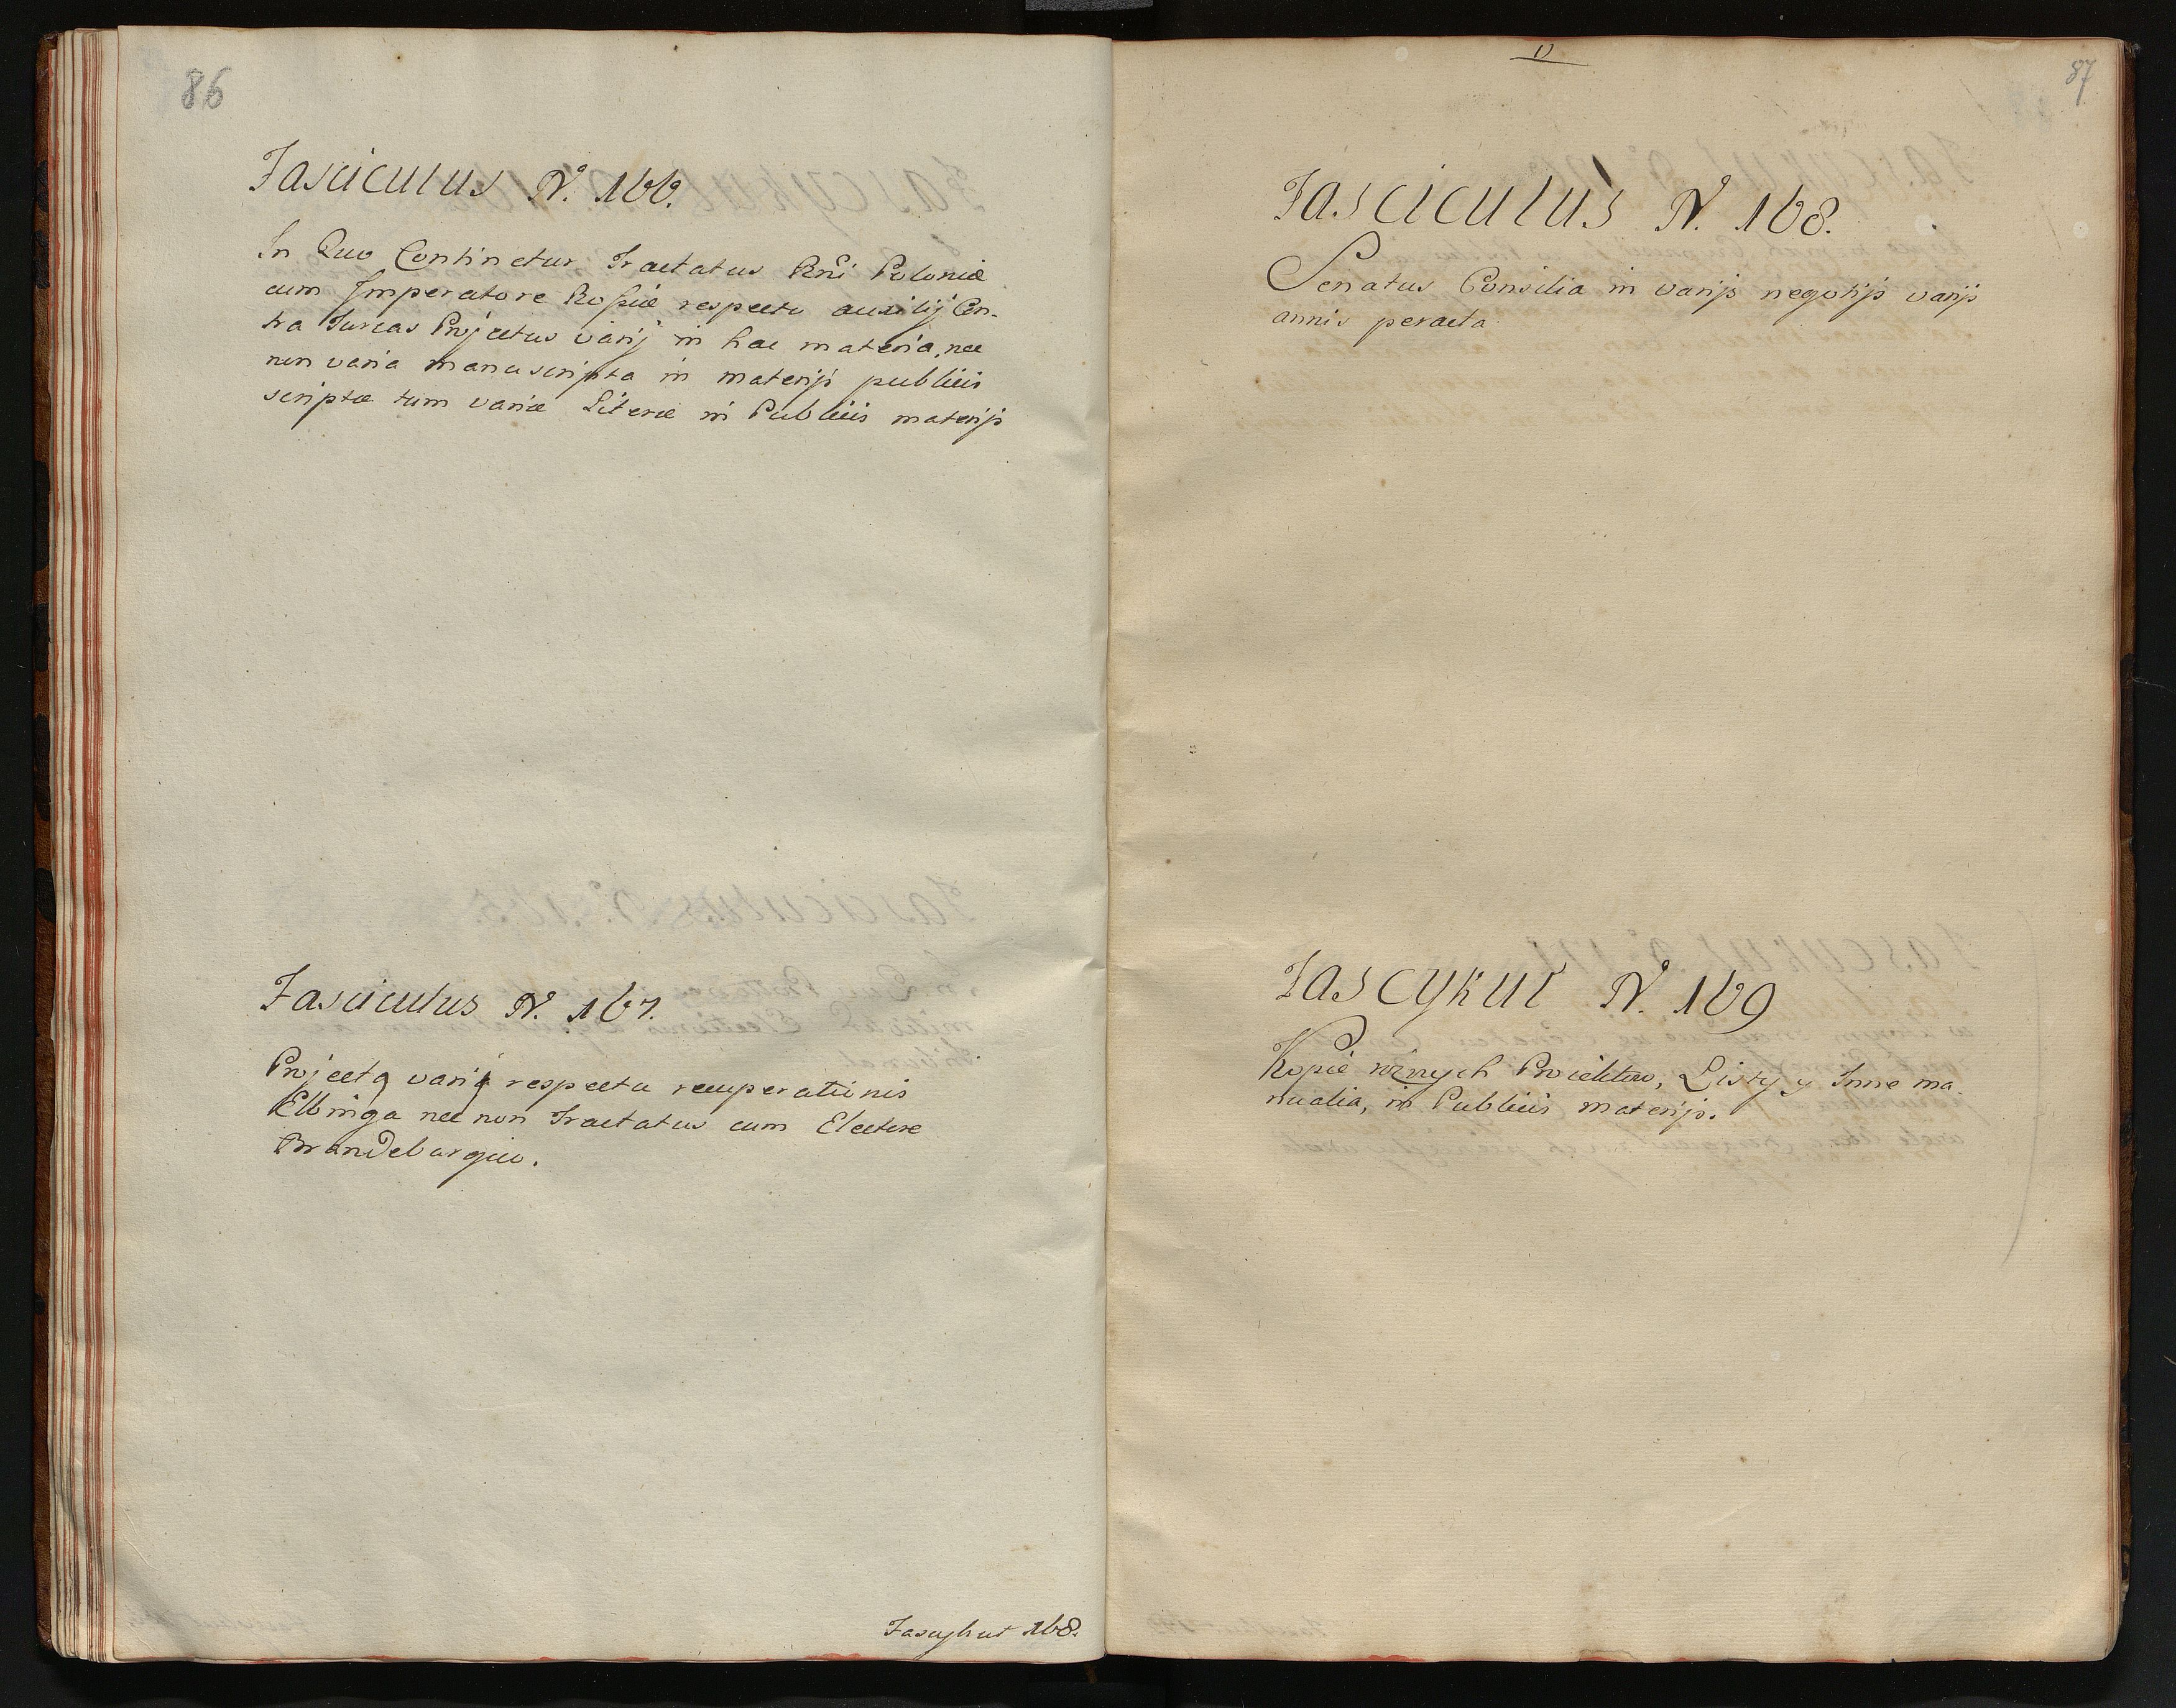 86
Fasciculus N. 166.
In Quo Continetur Tractatus Rni Poloniæ
cum Imperatore Rossiæ respectu auxilij Con-
tra Turcas Projectus varij in hac materia, nec
non varia manuscripta in materijs publicis
scriptæ tum variæ Literæ in Publicis materijs
Fasciculus N. 167.
Projecta varia respectu recuperationis
Elbinga nec non Tractatus cum Electore
Brandeburgico.
Fascykuł 168.
87
Fasciculus N. 168.
Senatus Consilia in varijs negotijs varijs
annis peracta
Fascykuł N. 169
Kopie róznych Proiektow, Listy y Inne ma-
nualia, in Publicis materijs.